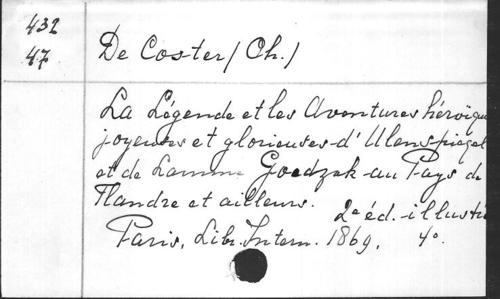 432
47
De Coster (Ch.)
La Légende et les Aventures héroïqu
joyeuses et glorieuses d'Ulenspiegel
et de Lamme Goedzak au Pays de
Flandre et ailleurs.
2e éd. illustr
Paris, Libr. Intern. 1869. 4o.